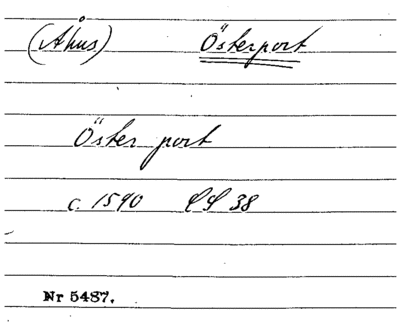 (Åhus) Österport
Öster port
c. 1590 SS 38
Nr 5487.